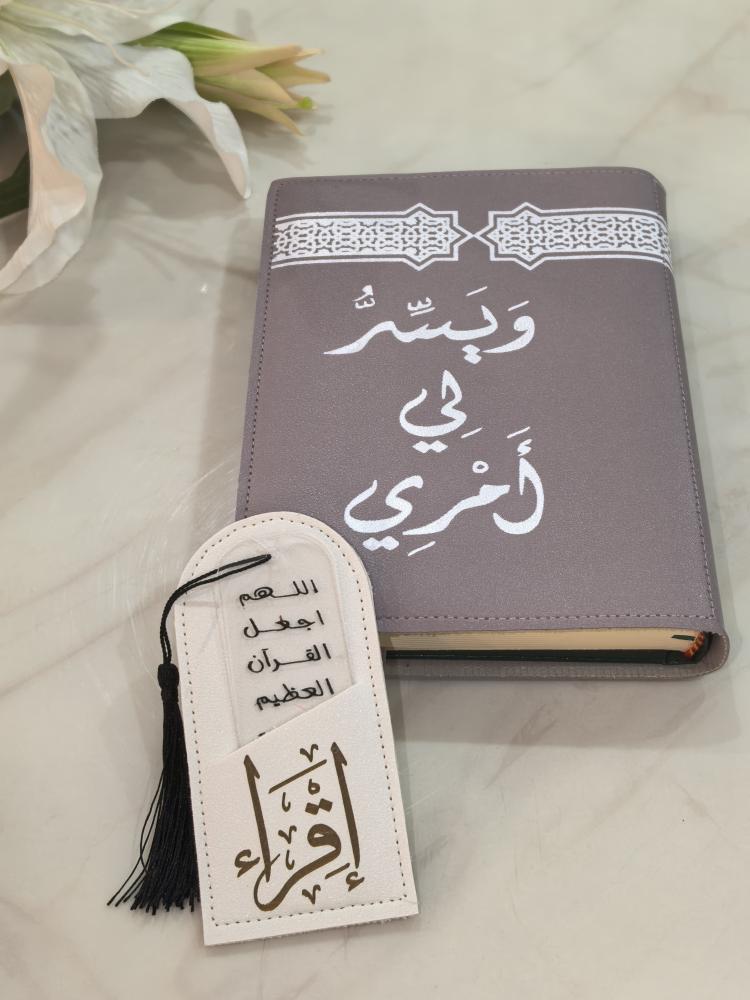 وَيَسِّرُّ
لِي
أَمْرِي
اللهم
اجعل
القرآن
العظيم
إقرأ